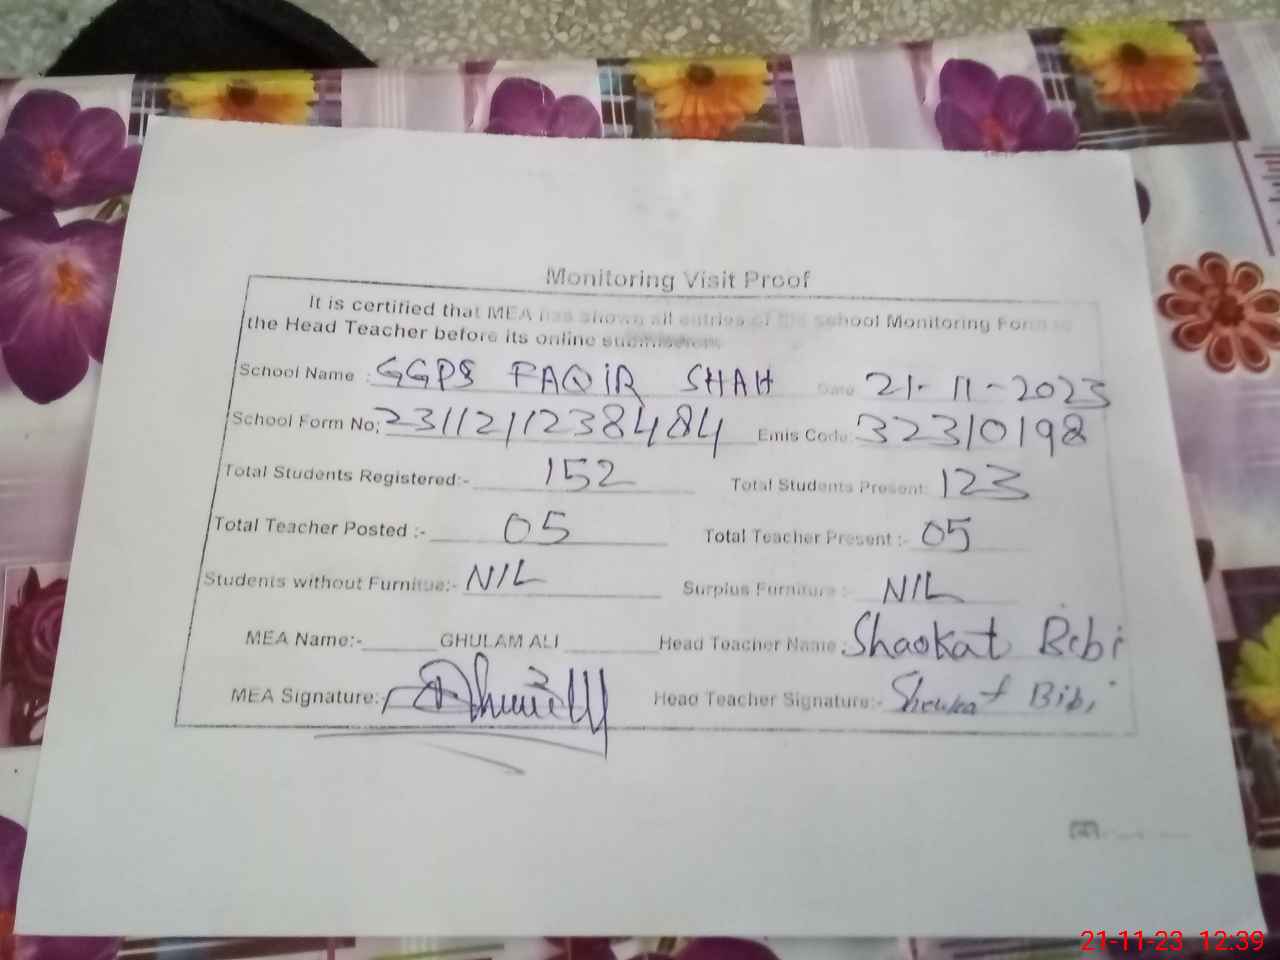 Monitoring Visit Proof
It is certified that MEA has shown all entries of the school Monitoring Form to
the Head Teacher before its online submission.
School Name : GGPS FAQIR SHAH Date 21-11-2023
School Form No: 2311211238484 Emis Code: 32310198
Total Students Registered:- 152 Total Students Present: 123
Total Teacher Posted :- 05 Total Teacher Present :- 05
Students without Furnitue:- NIL Surplus Furniture :- NIL
MEA Name:- GHULAM ALI Head Teacher Name : Shaokat Bibi
MEA Signature: Head Teacher Signature:- Shoukat Bibi
21-11-23 12:39